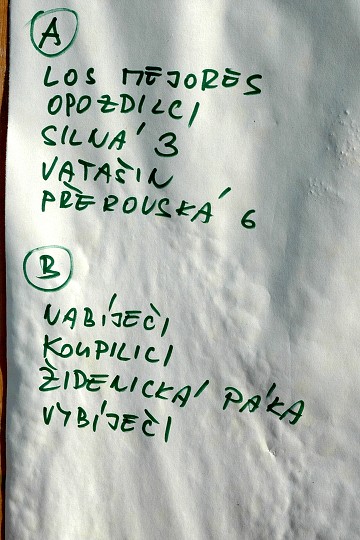 A
LOS MEJORES
OPOZDILCI
SILNÁ 3
VATAŠIN
PŘEROVSKÁ 6
B
NABÍJEČI
KOUPILICI
ŽIDENICKÁ PÁKA
VYBÍJEČI